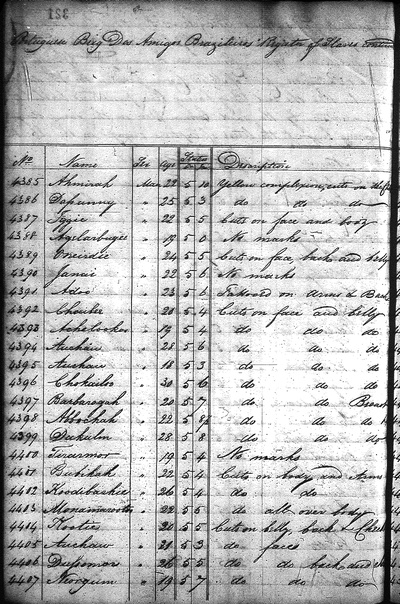 321
Portuguese Brig Dos Amigos Brazileiros' Register of Slaves contin
No Name Sex Age Feet In Description
4385 Ahmirah Man 22 5 10 Yellow complexion, cuts on the f
4386 Dahunny " 25 5 3 do do do
4387 Iggie " 22 5 5 Cuts on face and body
4388 " 19 5 0 No marks
4389 Oneirdie " 24 5 5 Cuts on face, back and belly
4390 Janai " 22 5 6 No marks
4391 Adoo " 23 5 6 Tattooed on Arms & Back
4392 " 20 5 4 Cuts on face and belly
4393 " 19 5 4 do do do
4394 Auchau " 28 5 6 do do do
4395 Auchau " 18 5 3 do do do
4396 Chokailoo " 30 5 6 do do do
4397 Barbaragah " 20 5 7 do do Breast
4398 Abbochah " 22 5 8½ do do do
4399 " 28 5 8 do do do
4400 " 19 5 4 No marks
4401 " 22 5 4 Cuts on body and Arms
4402 " 26 5 4 do do
4403 " 22 5 5 do all over body
4404 " 20 5 5 Cuts on belly, back & Chest
4405 Auchaw " 21 5 3 do face
4406 " 26 5 5 do do back and
4407 " 19 5 7 do do do